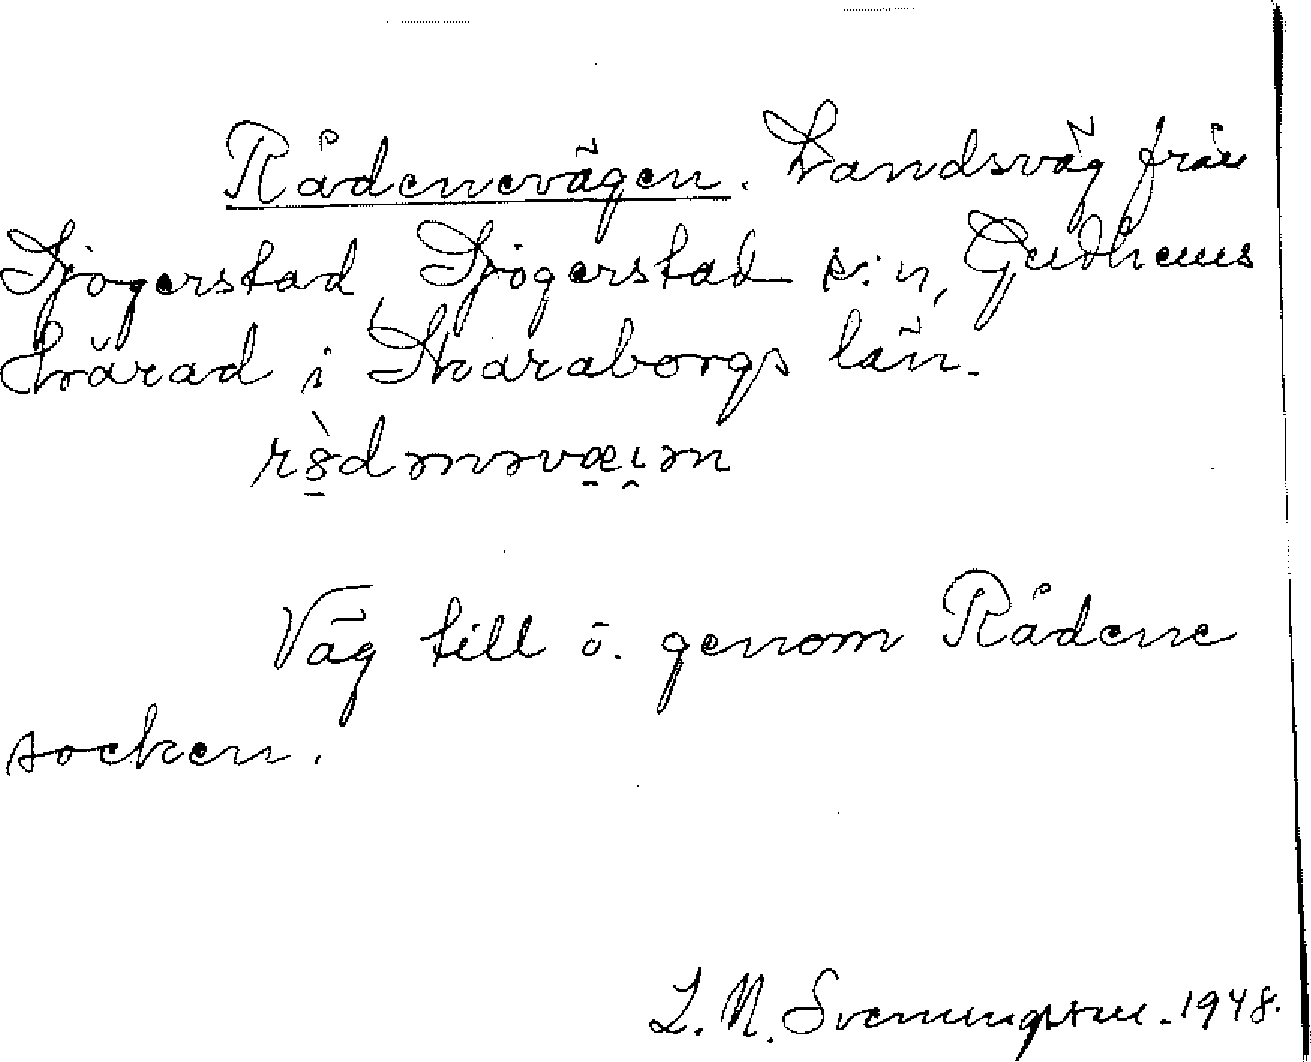 Rådenevägen. Landsväg från
Sjögerstad, Sjögerstad s:n, Gudhems
härad i Skaraborgs län.
Väg till ö. genom Rådene
socken.
L. N. Svenungsson. 1948.